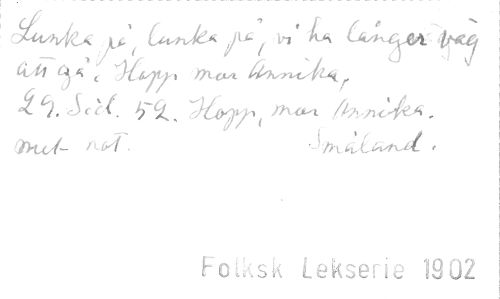 Lunka på, lunka på, vi ha långer väg
att gå. Hopp mor Annika,
29. Sid. 52. Hopp, mor Annika.
met not. Småland.
Folksk Lekserie 1902